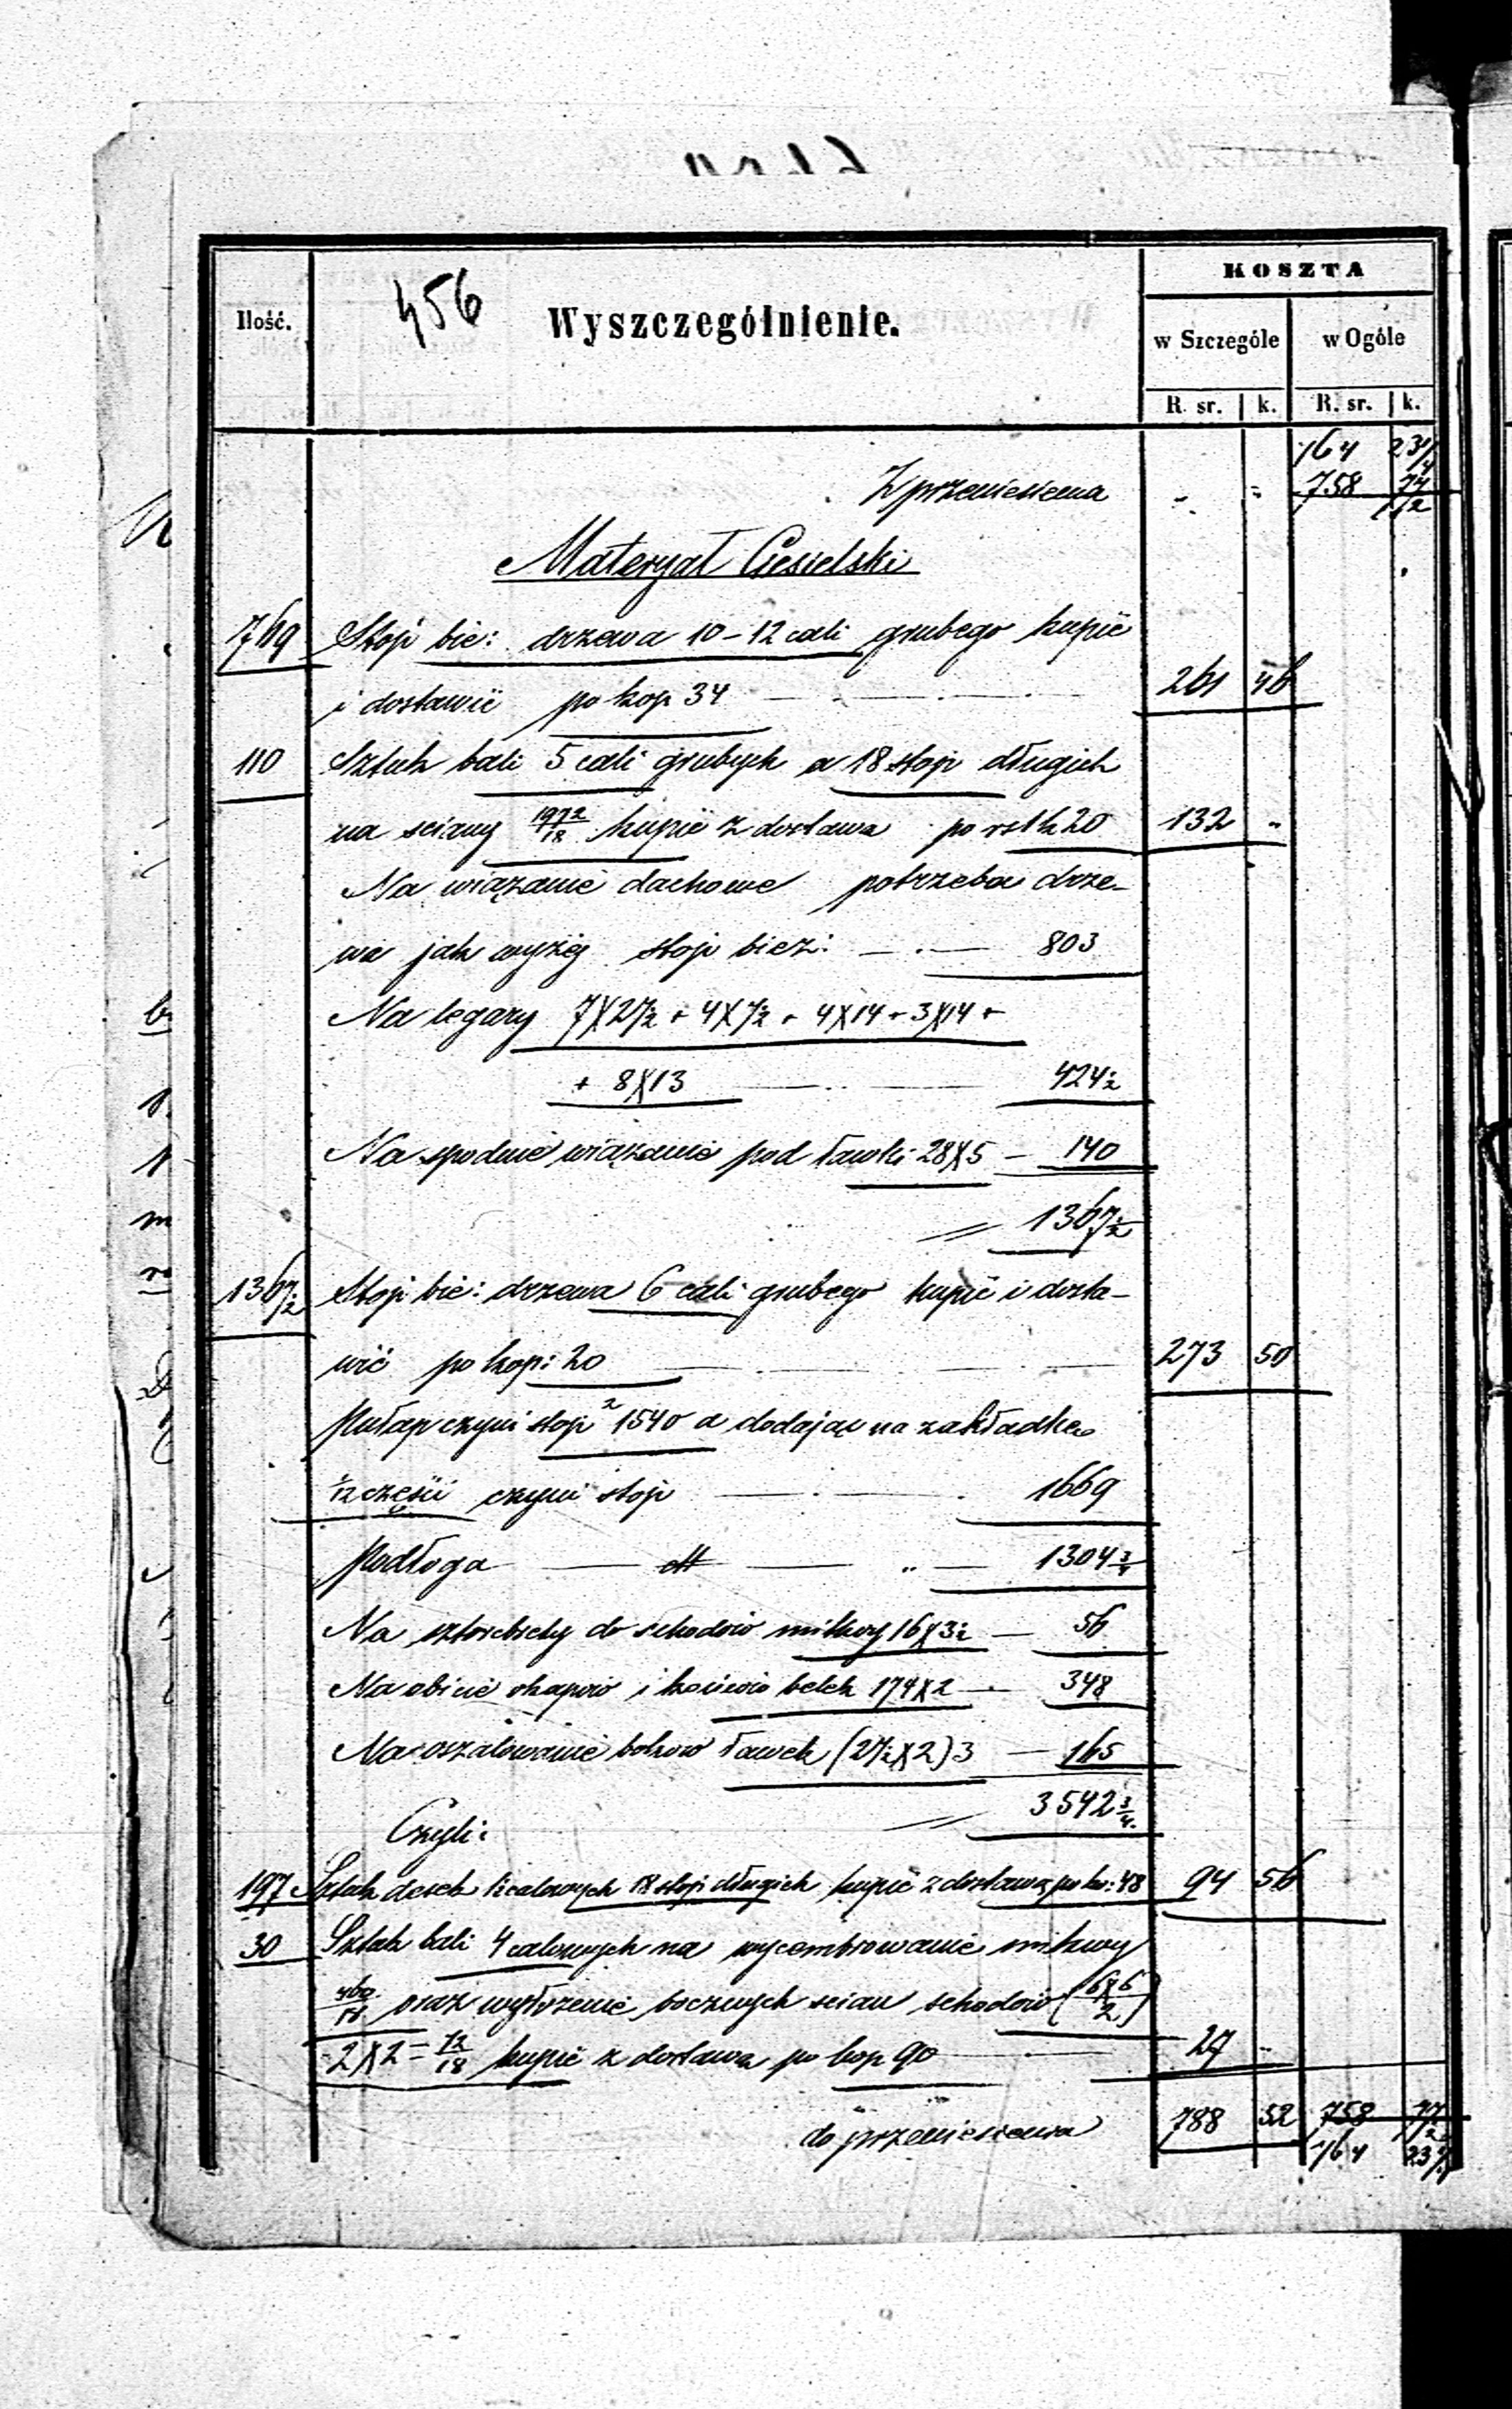 456
Ilość.
Wyszczególnienie.
KOSZTA
w Szczególe
w Ogóle
R. sr. k. R. sr. k.
Z przeniesienia " " 758
Materyał Ciesielski
769 Stóp bie: drzewa 10-12 cali grubego kupić
i dostawić po kop 34 261 46
110 Sztuk bali 5 cali grubych a 18 stóp długich
na ściany 1972/18 kupić z dostawą po rs 1 k 20 132 "
Na wiązanie dachowe potrzeba drze-
wa jak wyżej stóp bież: 803
Na legary 7X27½ + 4X7½ + 4X14 + 3X14 +
+ 8X13 424½
Na spodnie wiązanie pod ławki 28X5 — 140
= 1367½
1367½ Stóp bie: drzewa 6 cali grubego kupić i dosta-
wić po kop: 20 273 50
Pułap czyni stóp² 1540 a dodając na zakładkę
1/12 części czyni stóp 1669
Podłoga — dtt — " — 1304¾
Na sztorchchy do schodów mikwy 16X3½ — 56
Na obicie okapów i końców belek 174X2 — 348
Na oszalowanie boków ławek (27½X2)3 — 165
= 3542¾
Czyli:
197 Sztuk desek calowych 18 stóp długich kupić z dostawą po ko: 48 94 56
30 Sztuk bali 4 calowych na wycembrowanie mikwy
460/18 oraz wyłożenie bocznych ścian schodów (6X6/2)
2X2 = 72/18 kupić z dostawą po kop 90 27 "
do przeniesienia 788 52 758